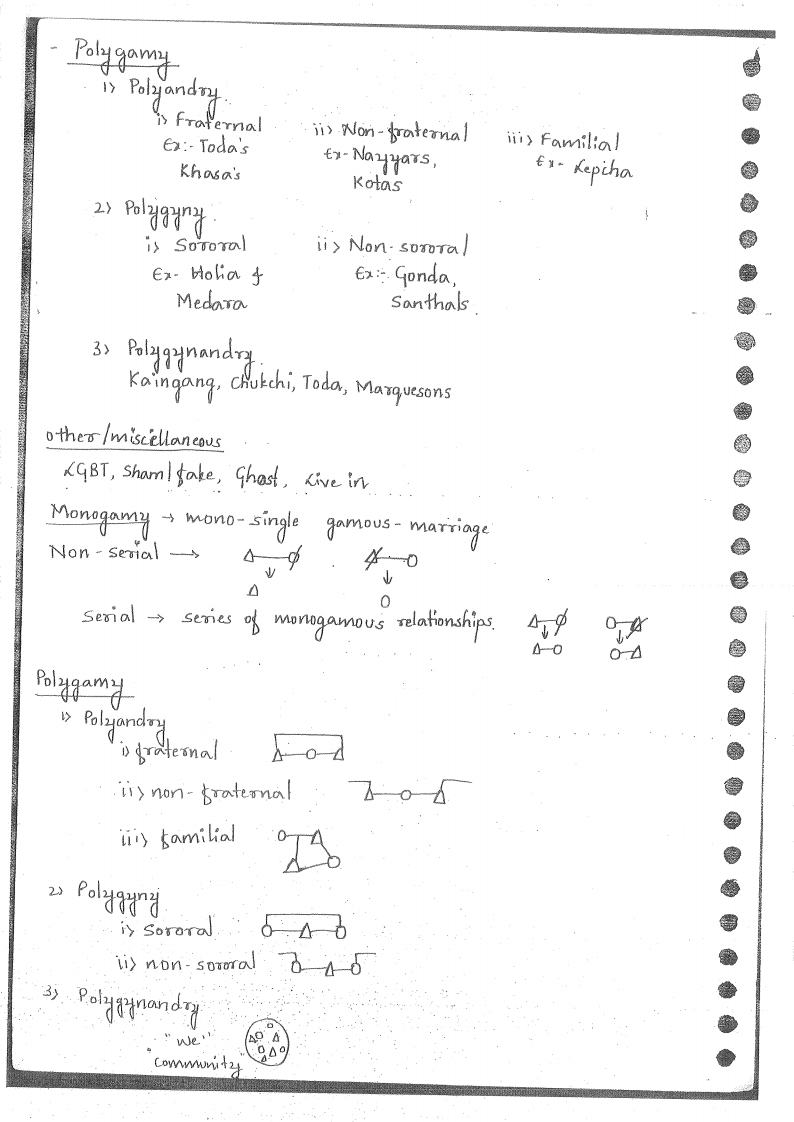 - Polygamy
1) Polyandry
i) Fraternal ii) Non-fraternal iii) Familial
Ex:- Toda's Ex- Nayyars, Ex- Lepcha
Khasa's Kotas
2) Polygyny
i) Sororal ii) Non-sororal
Ex- Holia & Ex:- Gonda,
Medara Santhals.
3) Polygynandry
Kaingang, Chukchi, Toda, Marquesons
other/miscellaneous
LGBT, Sham/fake, Ghost, Live in
Monogamy → mono-single gamous-marriage
Non-serial →
Serial → series of monogamous relationships.
Polygamy
1) Polyandry
i) fraternal
ii) non-fraternal
iii) familial
2) Polygyny
i) Sororal
ii) non-sororal
3) Polygynandry
"We"
"community"